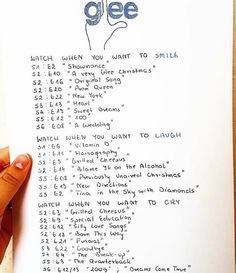 glee
WATCH WHEN YOU WANT TO SMILE
S1:E2 "Showmance"
S2:E10 "A very Glee Christmas"
S2:E16 "Original Song"
S2:E20 "Prom Queen"
S2:E22 "New York"
S3:E13 "Heart"
S4:E19 "Sweet Dreams"
S5:E12 "100"
S6:E08 "A wedding"
WATCH WHEN YOU WANT TO LAUGH
S1:E6 "Vitamin D"
S1:E11 "Hairography"
S2:E3 "Grilled Cheesus"
S2:E14 "Blame It on the Alcohol"
S5:E8 "Previously Unaired Christmas"
S5:E13 "New Directions"
S5:E3 "Tina in the Sky with Diamonds"
WATCH WHEN YOU WANT TO CRY
S2:E3 "Grilled Cheesus"
S2:E9 "Special Education"
S2:E12 "Silly Love Songs"
S2:E18 "Born This Way"
S2:E21 "Funeral"
S2:E "Goodbye"
S4:E4 "The Break-up"
S5:E3 "The Quarterback"
S6:E12/13 "2009"; "Dreams Come True"